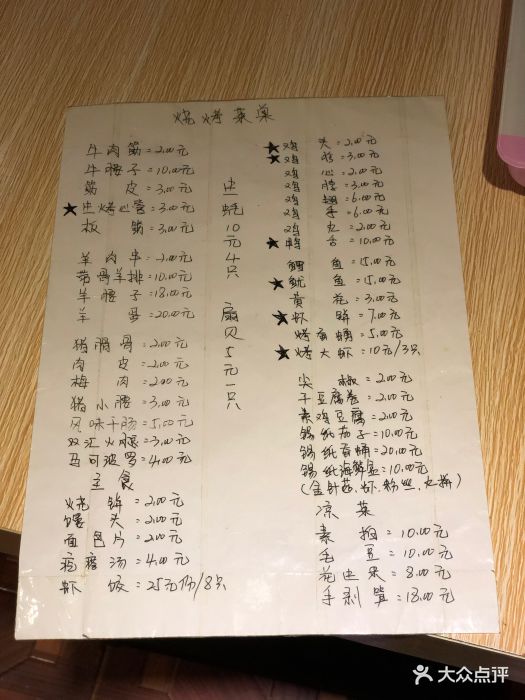 烧烤菜单
牛肉筋=2.00元
牛腰子=10.00元
筋皮=3.00元
★虫烤心管=3.00元
板筋=3.00元
羊肉串=2.00元
带骨羊排=10.00元
羊腰子=18.00元
羊=20.00元
猪脆骨=2.00元
肉皮=2.00元
梅肉=2.00元
猪小腰=3.00元
风味干肠=5.00元
双汇火腿=3.00元
马可波罗=4.00元
主食
烧饼=2.00元
馒头=2.00元
面包片=2.00元
疙瘩汤=4.00元
虾饭=25元/份/8只
虫蚝10元4只
扇贝5元一只
★鸡头=2.00元
★鸡=3.00元
鸡心=2.00元
鸡=3.00元
鸡翅=6.00元
鸡手=6.00元
鸡丸=2.00元
★鸭舌=10.00元
鲷鱼=15.00元
★鱿鱼=15.00元
黄花=3.00元
★虾饼=7.00元
烤扇=5.00元
★烤大虾=10元/3只
尖椒=2.00元
干豆腐卷=2.00元
素鸡豆腐=2.00元
锡纸茄子=10.00元
锡纸=20.00元
锡纸海鲜=10.00元
(金针菇、虾、粉丝、丸拼)
凉菜
素拍=10.00元
毛豆=10.00元
花虫米=8.00元
手剥笋=18.00元
大众点评